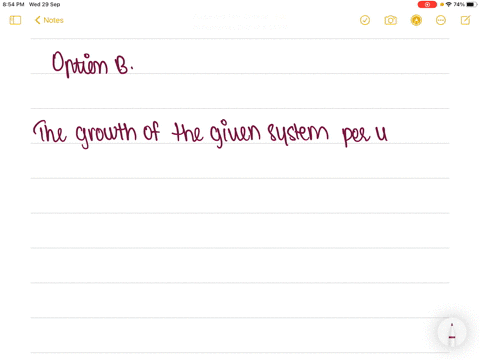 8:54 PM Wed 29 Sep
74%
Notes
Option B.
The growth of the given system per u